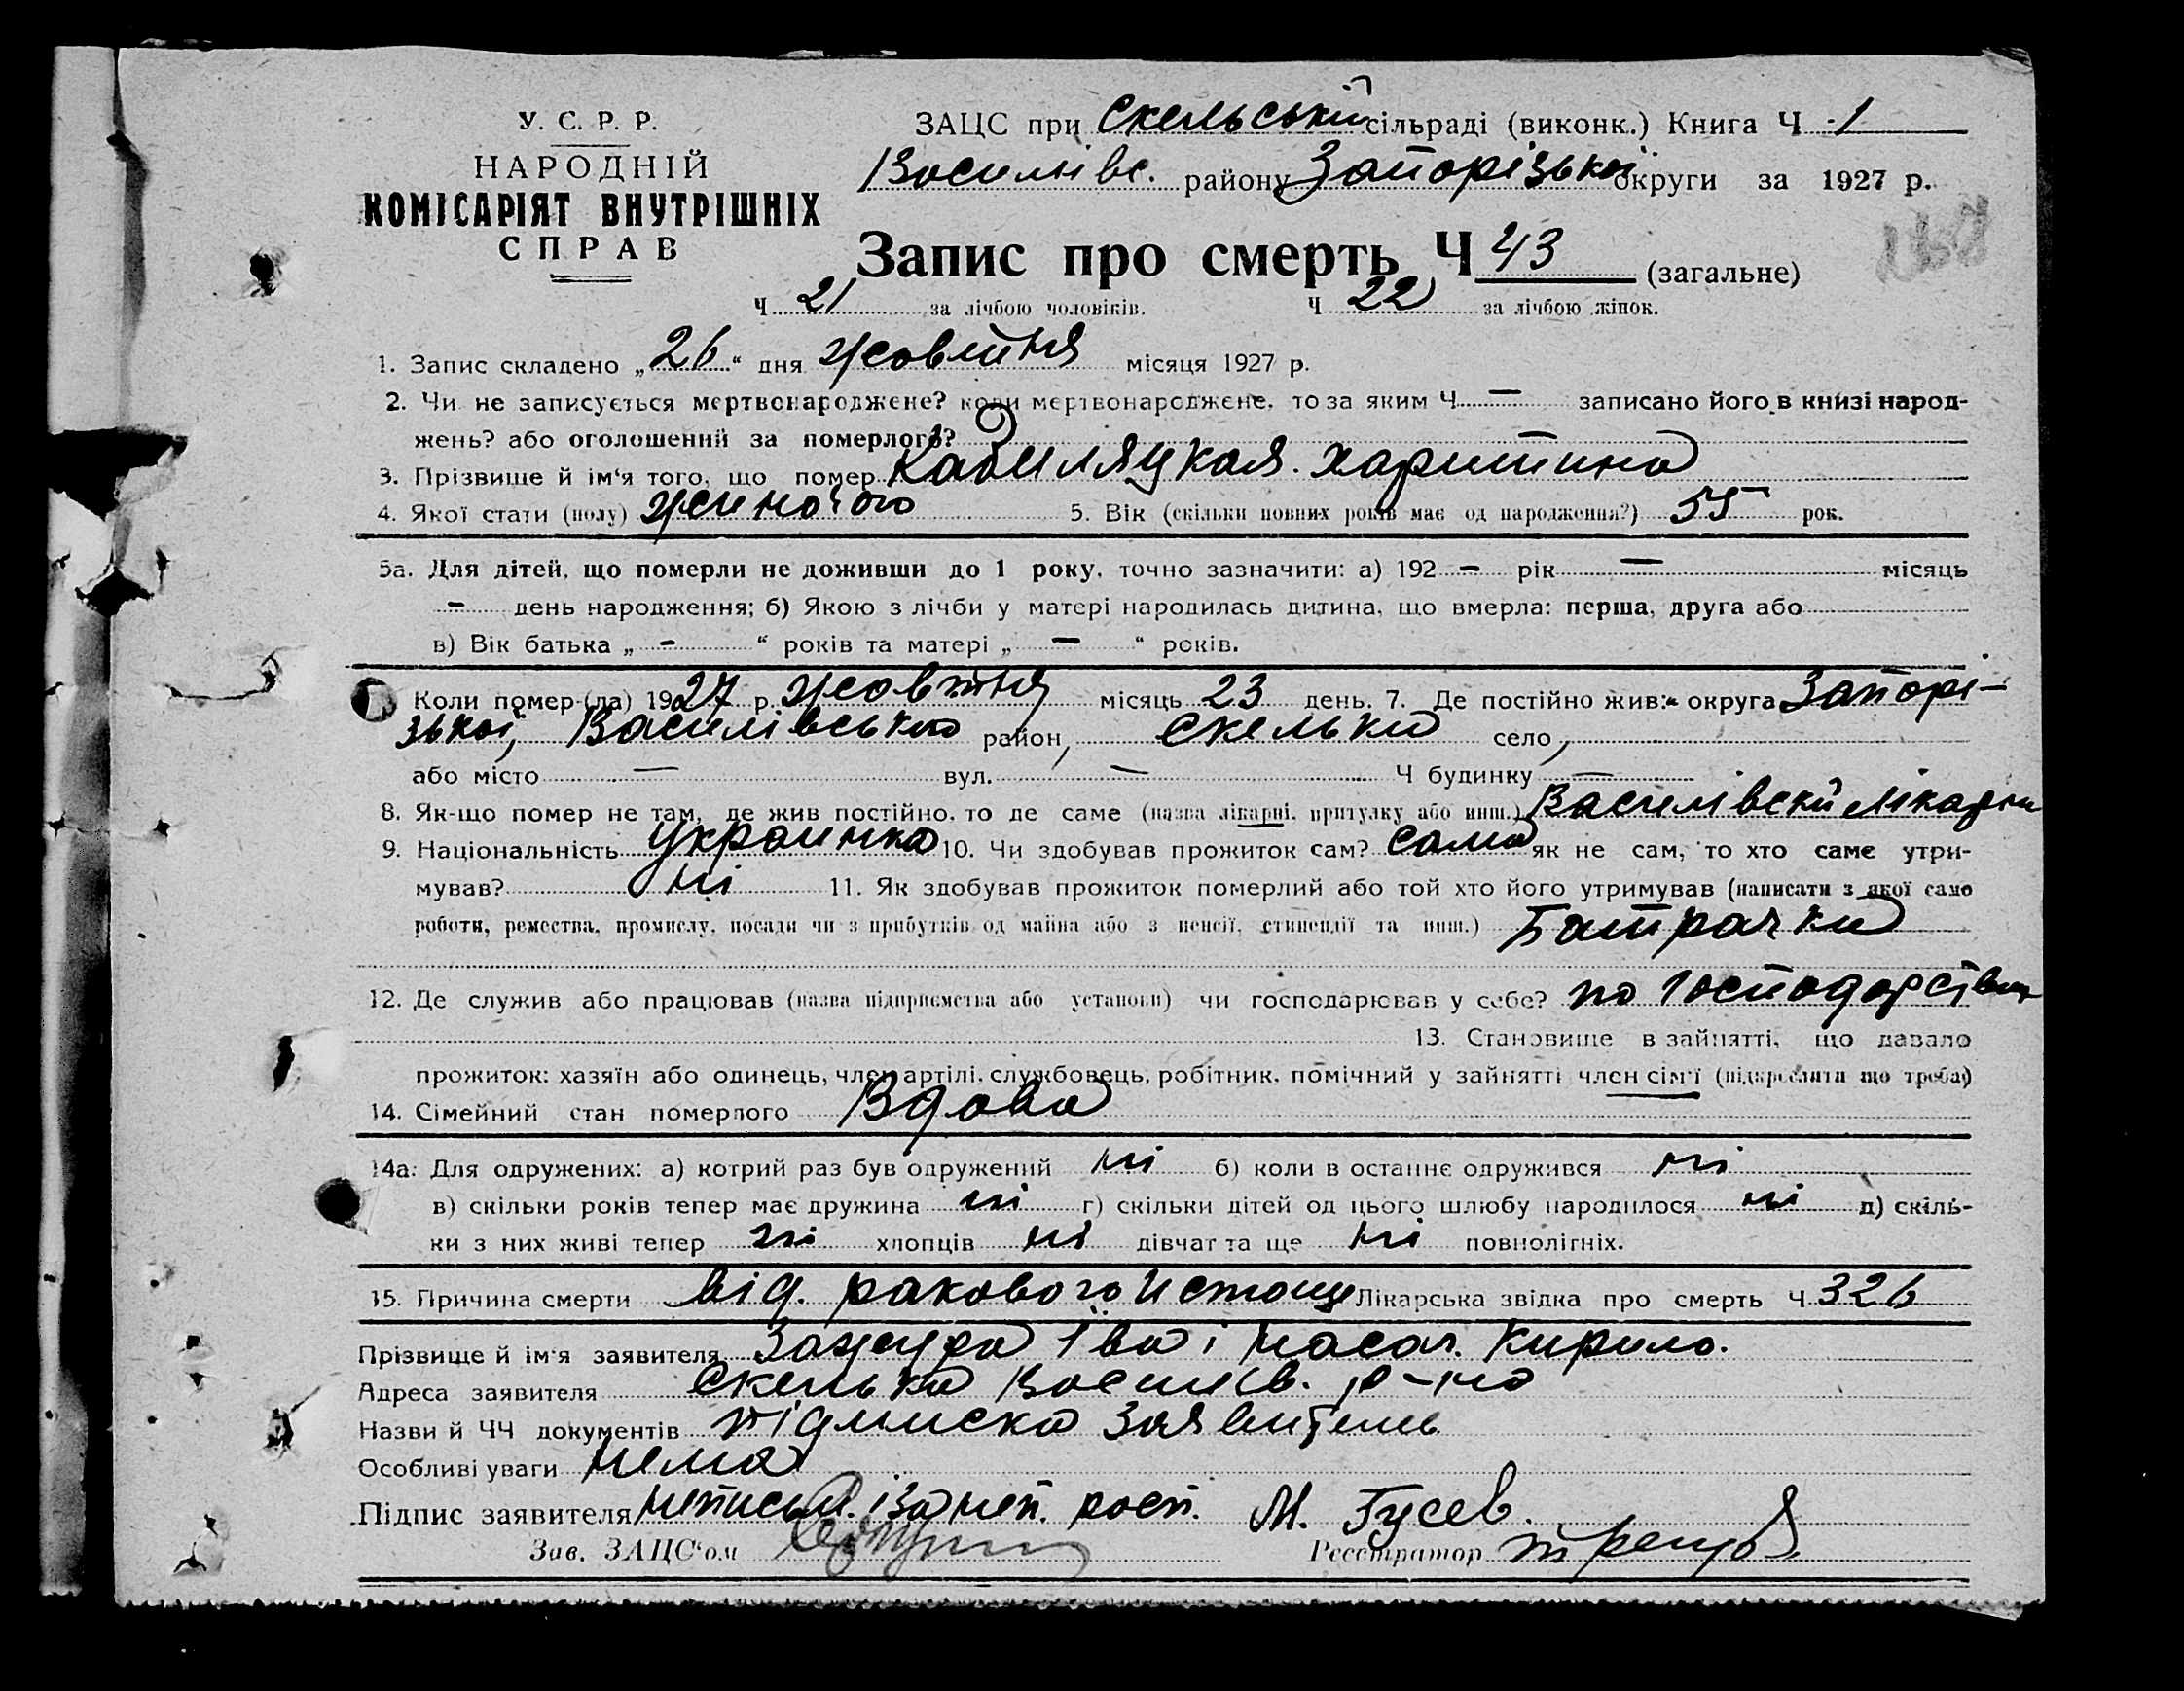 У. С. Р. Р.
НАРОДНІЙ
КОМІСАРІЯТ ВНУТРІШНІХ
СПРАВ
ЗАЦС при Скельській сільраді (виконк.) Книга Ч 1
Василівс. району Запорізької округи за 1927 р.
Запис про смерть Ч 43 (загальне)
Ч 21 за лічбою чоловіків. Ч 22 за лічбою жінок.
1. Запис складено „26“ дня жовтня місяця 1927 р.
2. Чи не записується мертвонароджене? коли мертвонароджене, то за яким Ч — записано його в книзі народ-
жень? або оголошений за померлого?
3. Прізвище й ім'я того, що помер Харитина
4. Якої стати (полу) 5. Вік (скільки повних років має од народження?) 55 рок.
5а. Для дітей, що померли не доживши до 1 року, точно зазначити: а) 192 – рік — місяць
– день народження; б) Якою з лічби у матері народилась дитина, що вмерла: перша, друга або
в) Вік батька „ – “ років та матері „ — “ років.
Коли помер (ла) 1927 р. жовтня місяць 23 день. 7. Де постійно жив: округа Запорі-
зької, Василівського район, Скельки село,
або місто — вул. — Ч будинку —
8. Як-що помер не там, де жив постійно, то де саме (назва лікарні, притулку або инш.) Василівскій лікарни
9. Національність Украинка 10. Чи здобував прожиток сам? Сама як не сам, то хто саме утри-
мував? ні 11. Як здобував прожиток померлий або той хто його утримував (написати з якої само
роботи, ремества, промислу, посади чи з прибутків од майна або з пенсії, стипендії та инш.) Батрачки
12. Де служив або працював (назва підприємства або установи) чи господарював у себе? по господарству
13. Становище в зайнятті, що давало
прожиток: хазяїн або одинець, член артілі, службовець, робітник, помічний у зайнятті член сім'ї (підкреслити що треба)
14. Сімейний стан померлого Вдова
14а. Для одружених: а) котрий раз був одружений ні б) коли в останнє одружився ні
в) скільки років тепер має дружина ні г) скільки дітей од цього шлюбу народилося ні д) скіль-
ки з них живі тепер ні хлопців ні дівчат та ще ні повнолітніх.
15. Причина смерти від. ракового истощ Лікарська звідка про смерть Ч 326
Прізвище й ім'я заявителя Зажура Іва і Кирило.
Адреса заявителя Скелька Василів. р-на
Назви й ЧЧ документів підписка Заявитель
Особливі уваги Нема
Підпис заявителя М. Гусев.
Зав. ЗАЦС'ом Реєстратор